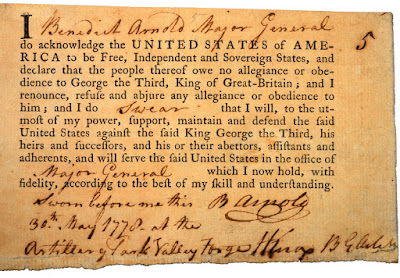 I Benedict Arnold Major General
do acknowledge the UNITED STATES of AME-
RICA to be Free, Independent and Sovereign States, and
declare that the people thereof owe no allegiance or obe-
dience to George the Third, King of Great-Britain; and I
renounce, refuse and abjure any allegiance or obedience to
him; and I do swear that I will, to the ut-
most of my power, support, maintain and defend the said
United States against the said King George the Third, his
heirs and successors, and his or their abettors, assistants and
adherents, and will serve the said United States in the office of
Major General which I now hold, with
fidelity, according to the best of my skill and understanding.
Sworn before me this B Arnold
30th May 1778 at the
Artillery Park Valley Forge HKnox B G Artily
5